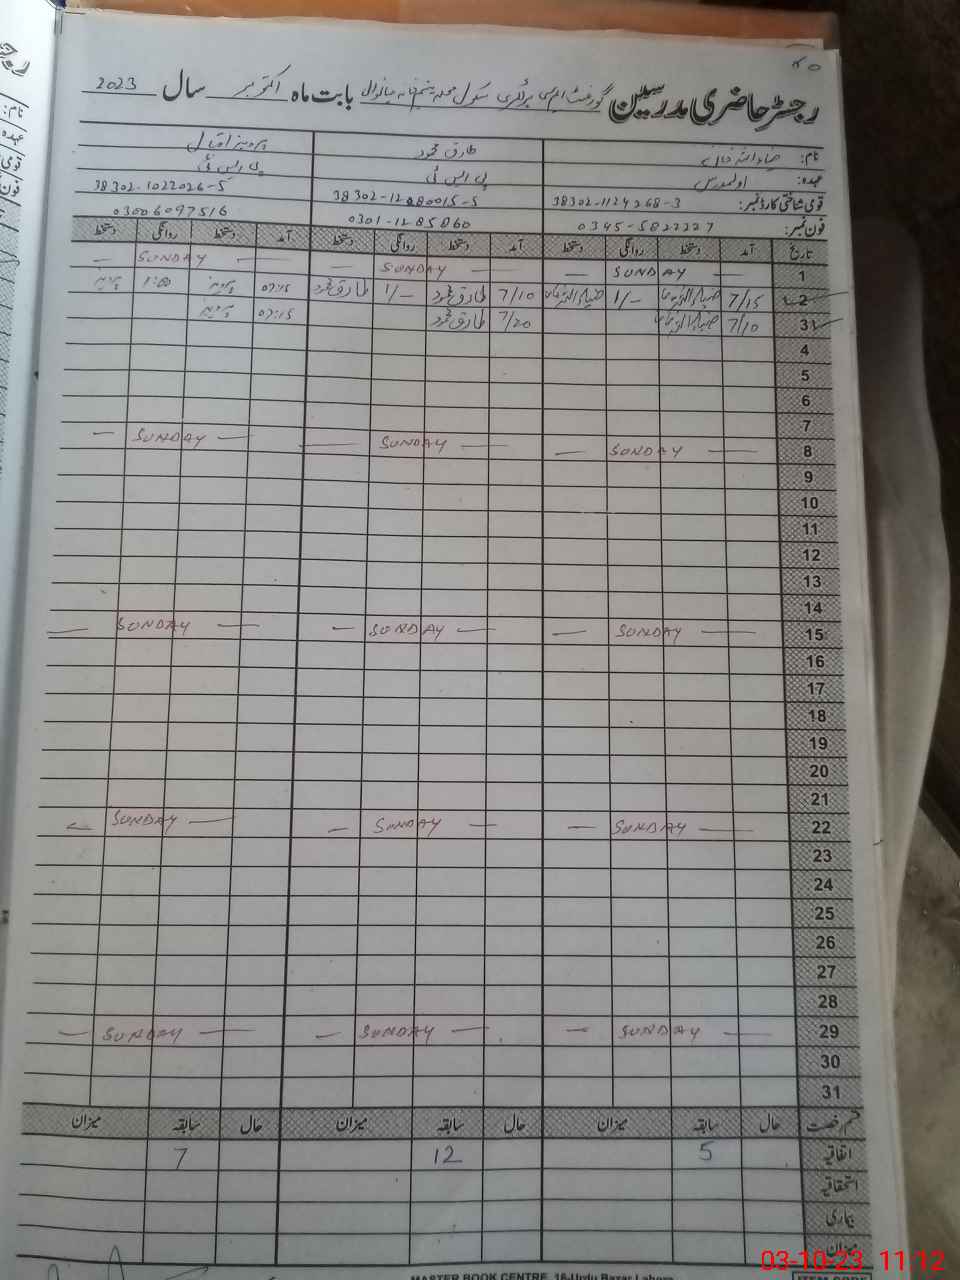 رجسٹر حاضری مدرسین گورنمنٹ ایم سی پرائمری سکول محلہ یتیم خانہ میانوالی بابت ماہ اکتوبر سال 2023
نام: ضیاء اللہ خان طارق محمود پرویز اقبال
عہدہ: اول مدرس پی ایس ٹی پی ایس ٹی
قومی شناختی کارڈ نمبر: 38302-1124268-3 38302-1280015-5 38302-1022026-5
فون نمبر: 0345-5822227 0301-1285860 03006097516
تاریخ آمد دستخط روانگی دستخط آمد دستخط روانگی دستخط آمد دستخط روانگی دستخط
1 — SUNDAY — — SUNDAY — — SUNDAY —
2 7/15 ضیاء اللہ خان 1/- ضیاء اللہ خان 7/10 طارق محمود 1/- طارق محمود 07:15 پرویز 1:00 پرویز
3 7/10 ضیاء اللہ خان 7/20 طارق محمود 07:15 پرویز
4
5
6
7
8 — SUNDAY — — SUNDAY — — SUNDAY —
9
10
11
12
13
14
15 — SUNDAY — — SUNDAY — — SUNDAY —
16
17
18
19
20
21
22 — SUNDAY — — SUNDAY — — SUNDAY —
23
24
25
26
27
28
29 — SUNDAY — — SUNDAY — — SUNDAY —
30
31
قسم رخصت حال سابقہ میزان حال سابقہ میزان حال سابقہ میزان
اتفاقیہ 5 12 7
استحقاقیہ
بیماری
میزان
MASTER BOOK CENTRE, 16-Urdu Bazar Lahore
03-10-23 11:12